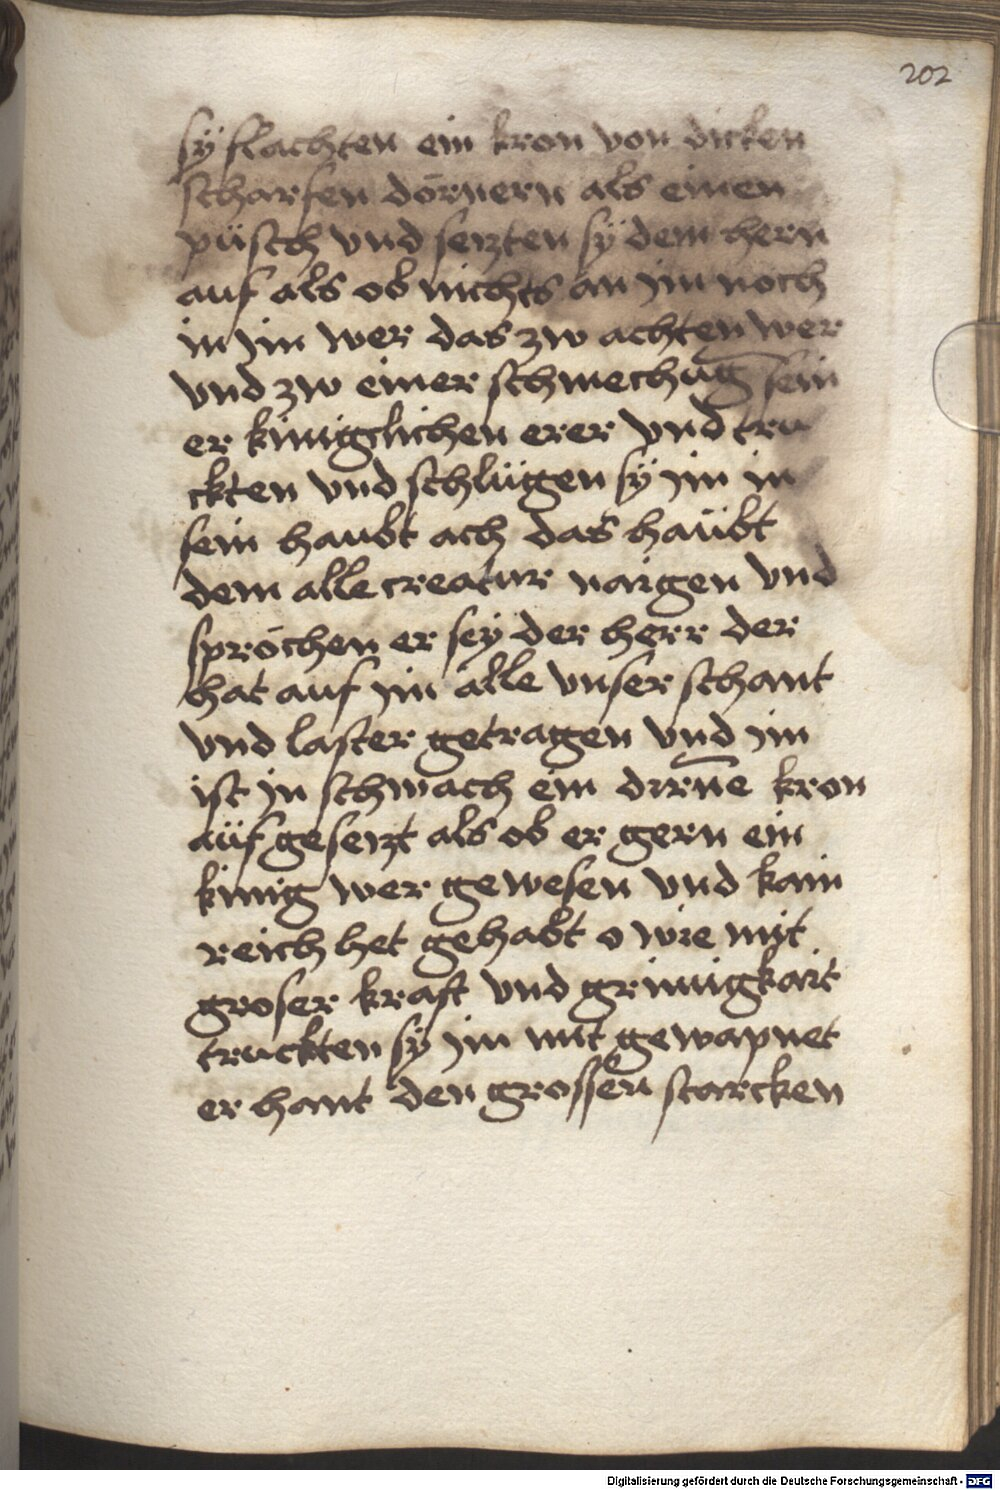 202
sÿ flachten ein kron von dicken
scharfen dörnern als einen
püsch vnd seczten sÿ dem hern
auf als ob nichts an jm noch
in jm wer das zw achten wer
vnd zw einer schmechūg sein
er küniglichen erer vnd tru
ckten vnd schlügen sÿ jm in
sein haubt ach das haübt
dem alle creatur naigen vnd
spröchen er seÿ der herr der
hat auf jm alle vnser schant
vnd laster getragen vnd jm
ist jn schmach ein dirne kron
aüf geseczt als ob er gern ein
künig wer gewesen vnd kain
reich het gehabt o wie mit
groser kraft vnd grimigkait
truckten sÿ jm mit gewapnet
er hant den grossen starcken
Digitalisierung gefördert durch die Deutsche Forschungsgemeinschaft - DFG